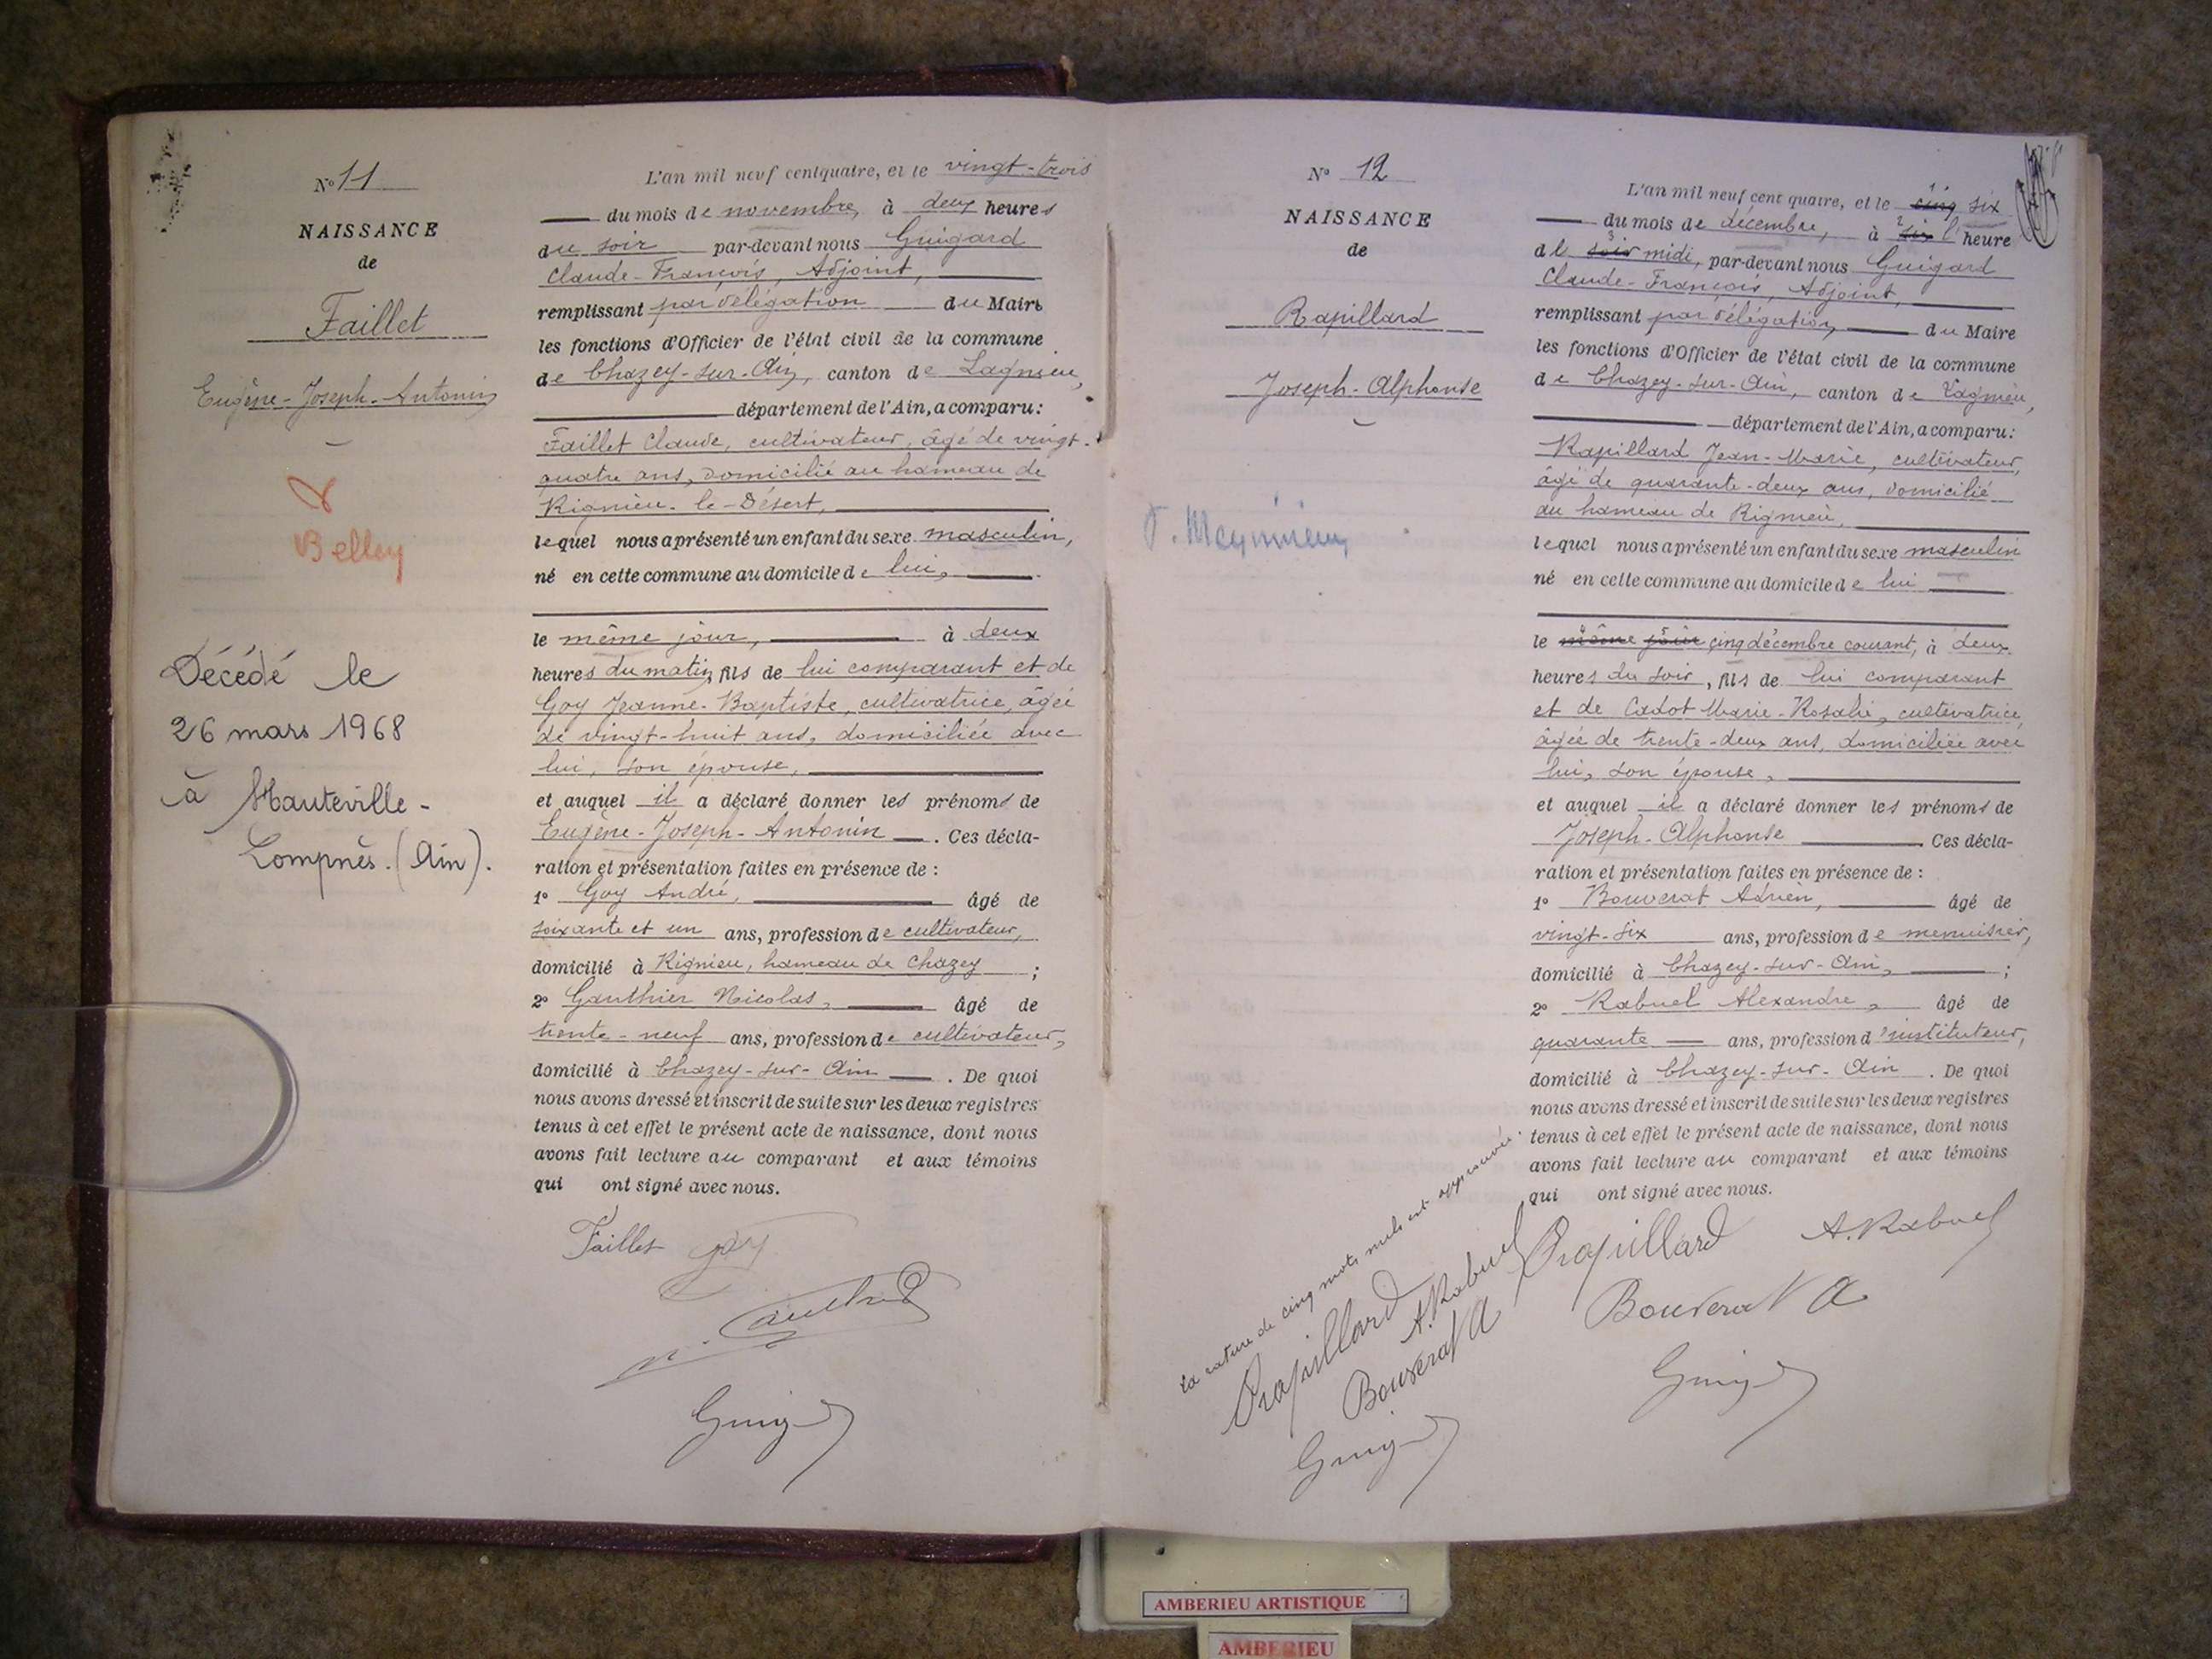 N° 11
NAISSANCE
de
Faillet
Eugène-Joseph-Antonin
Belley
Décédé le
26 mars 1968
à Hauteville-
Lompnès. (Ain).
L'an mil neuf cent quatre, et le vingt-trois
du mois de novembre, à deux heures
du soir par-devant nous Guigard
Claude-François, Adjoint,
remplissant par délégation du Maire
les fonctions d'Officier de l'état civil de la commune
de Chazey-sur-Ain, canton de Lagnieu,
département de l'Ain, a comparu:
Faillet Claude, cultivateur, âgé de vingt-
quatre ans, domicilié au hameau de
Rignieu-le-Désert,
lequel nous a présenté un enfant du sexe masculin,
né en cette commune au domicile de lui,
le même jour, à deux
heures du matin, fils de lui comparant et de
Goy Jeanne-Baptiste, cultivatrice, âgée
de vingt-huit ans, domiciliée avec
lui, son épouse,
et auquel il a déclaré donner les prénoms de
Eugène-Joseph-Antonin. Ces décla-
ration et présentation faites en présence de :
1° Goy André, âgé de
soixante et un ans, profession de cultivateur,
domicilié à Rignieu, hameau de Chazey ;
2° Gauthier Nicolas, âgé de
trente-neuf ans, profession de cultivateur,
domicilié à Chazey-sur-Ain. De quoi
nous avons dressé et inscrit de suite sur les deux registres
tenus à cet effet le présent acte de naissance, dont nous
avons fait lecture au comparant et aux témoins
qui ont signé avec nous.
Faillet Goy
N° 12
NAISSANCE
de
Rapillard
Joseph-Alphonse
L'an mil neuf cent quatre, et le cinq six
du mois de décembre, à six l'heure
de soir midi, par-devant nous Guigard
Claude-François, Adjoint,
remplissant par délégation, du Maire
les fonctions d'Officier de l'état civil de la commune
de Chazey-sur-Ain, canton de Lagnieu,
département de l'Ain, a comparu:
Rapillard Jean-Marie, cultivateur,
âgé de quarante-deux ans, domicilié
au hameau de Rignieu,
lequel nous a présenté un enfant du sexe masculin
né en cette commune au domicile de lui
le même jour cinq décembre courant, à deux
heures du soir, fils de lui comparant
et de Cadot Marie-Rosalie, cultivatrice,
âgée de trente-deux ans, domiciliée avec
lui, son épouse,
et auquel il a déclaré donner les prénoms de
Joseph-Alphonse Ces décla-
ration et présentation faites en présence de :
1° Bouverat Adrien, âgé de
vingt-six ans, profession de menuisier,
domicilié à Chazey-sur-Ain, ;
2° Rabuel Alexandre, âgé de
quarante ans, profession d'instituteur,
domicilié à Chazey-sur-Ain. De quoi
nous avons dressé et inscrit de suite sur les deux registres
tenus à cet effet le présent acte de naissance, dont nous
avons fait lecture au comparant et aux témoins
qui ont signé avec nous.
La rature de cinq mots nuls est approuvée.
Rapillard A. Rabuel
Bouverat A
Rapillard A. Rabuel
Bouverat A
AMBERIEU ARTISTIQUE
AMBERIEU